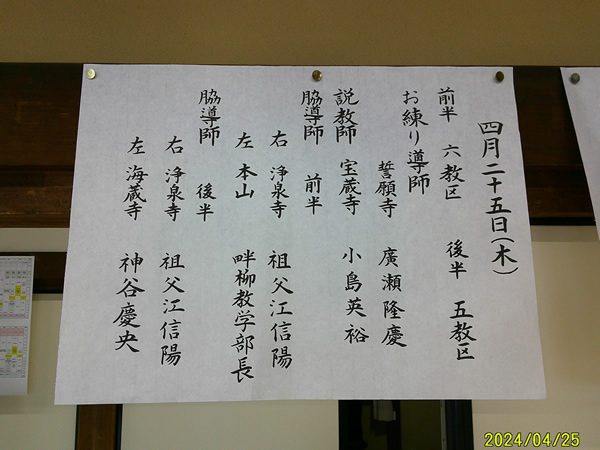 四月二十五日(木)
前半 六教区 後半 五教区
お練り導師
誓願寺 廣瀬隆慶
説教師 宝蔵寺 小島英裕
脇導師 前半
右 浄泉寺 祖父江信陽
左 本山 畔柳教学部長
脇導師 後半
右 浄泉寺 祖父江信陽
左 海蔵寺 神谷慶央
2024/04/25